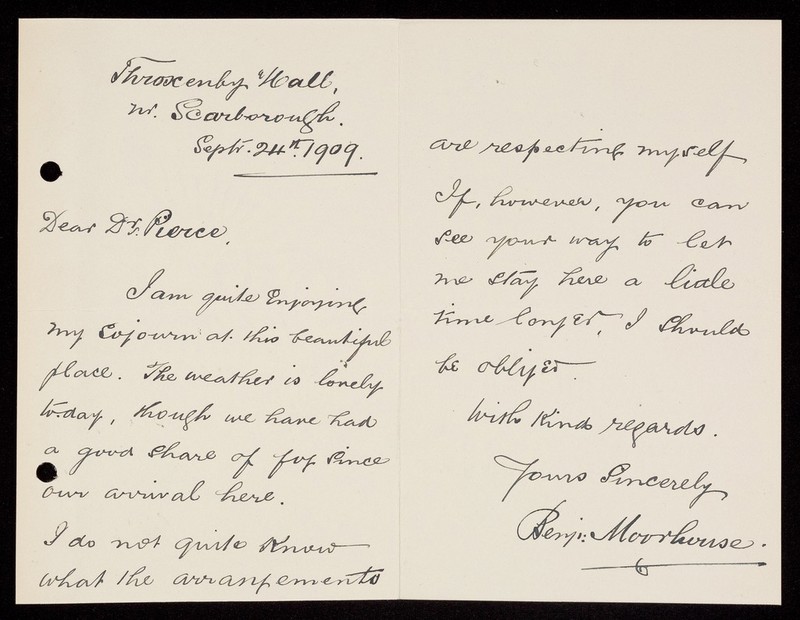 Throxenby Hall,
nr. Scarborough.
Septr. 24th. 1909.
Dear Dr. Pierce,
I am quite enjoying
my sojourn at this beautiful
place. The weather is lovely
to-day, though we have had
a good share of fog since
our arrival here.
I do not quite know
what the arrangements
are respecting myself
If, however, you can
see your way to let
me stay here a little
time longer, I should
be obliged.
With kind regards.
Yours Sincerely
Benj: Moorhouse.